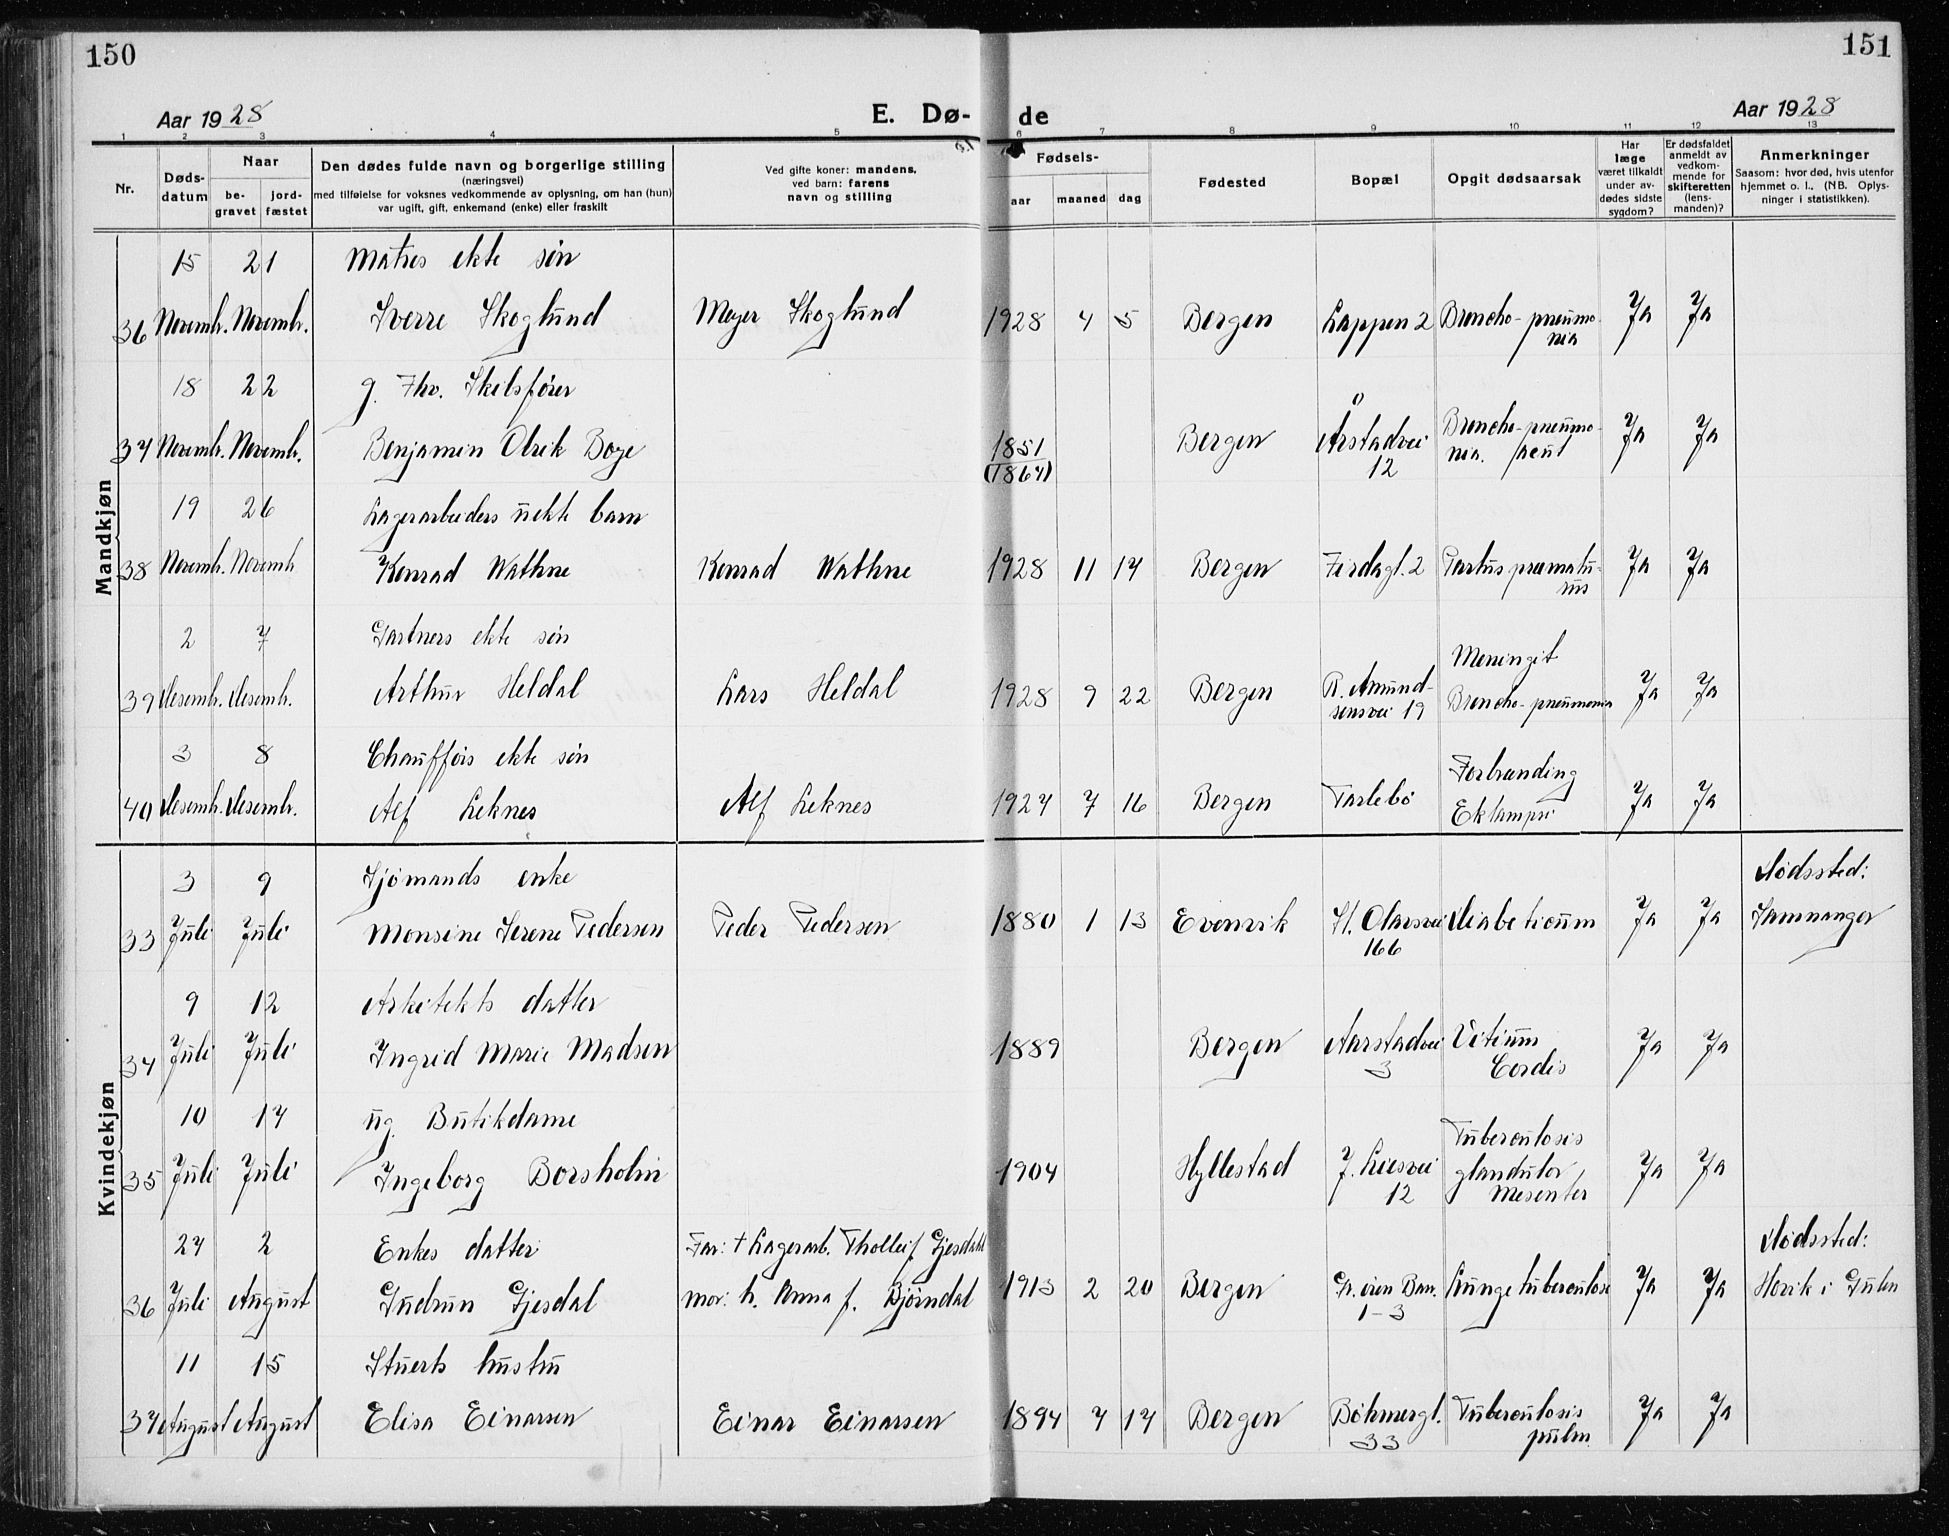 150
151
Aar 1928
E. Dø-
de
Aar 1928
1 2 3 4 5 6 7 8 9 10 11 12 13
Nr.
Døds-
datum
Naar
be-
gravet
jord-
fæstet
Den dødes fulde navn og borgerlige stilling
(næringsvei)
med tilføielse for voksnes vedkommende av oplysning, om han (hun)
var ugift, gift, enkemand (enke) eller fraskilt
Ved gifte koner: mandens,
ved barn: farens
navn og stilling
Fødsels-
aar maaned dag
Fødested
Bopæl
Opgit dødsaarsak
Har
læge
været tilkaldt
under av-
dødes sidste
sygdom?
Er dødsfaldet
anmeldt av
vedkom-
mende for
skifteretten
(lens-
manden)?
Anmerkninger
Saasom: hvor død, hvis utenfor
hjemmet o. l. (NB. Oplys-
ninger i statistikken).
Mandkjøn
15 21 Matros ekte søn
36 Novemb. Novemb. Sverre Skoglund Meyer Skoglund 1928 4 5 Bergen Lappen 2 Broncho-pneumo- Ja Ja
nia
18 22 g. Fhv. Skibsfører
37 Novemb. Novemb. Benjamin Olrik Boye 1851 Bergen Årstadvei Broncho-pneumo- Ja Ja
(1867) 12 nia. acut
19 26 Lagerarbeiders uekte barn
38 Novemb. Novemb. Konrad Wathne Konrad Wathne 1928 11 17 Bergen Firdagt. 2 Partus præmatu- Ja Ja
rus
2 7 Gartners ekte søn Meningit
39 Desemb. Desemb. Arthur Heldal Lars Heldal 1928 9 22 Bergen R. Amund- Broncho-pneumonia Ja Ja
sensvei 19
3 8 Chaufførs ekte søn Forbrænding
40 Desemb. Desemb. Alf Leknes Alf Leknes 1927 7 16 Bergen Tarlebø Eklampsi Ja Ja
Kvindekjøn
3 9 Sjømands enke Dødssted:
33 Juli Juli Monsine Serene Pedersen Peder Pedersen 1880 1 13 Evenvik St. Olavsvei Diabeticum Ja Ja Samnanger
166
9 12 Arkitekts datter
34 Juli Juli Ingrid Marie Madsen 1889 Bergen Aarstadvei Vitium Ja Ja
3 Cordis
10 17 ug. Butikdame Tuberculosis
35 Juli Juli Ingeborg Borsholm 1904 Hyllestad J. Liesvei glandulor Ja Ja
12 Mesenter
27 2 Enkes datter Far: † Lagerarb. Tholleif Gjesdahl Dødssted:
36 Juli August Gudrun Gjesdal mor: h. Anna f. Bjørndal 1913 2 20 Bergen 1-3 Lungetuberculose Ja Ja i Gulen
11 15 Stuerts hustru
37 August August Elisa Einarsen Einar Einarsen 1897 7 17 Bergen Böhmergt. Tuberculosis Ja Ja
33 pulm